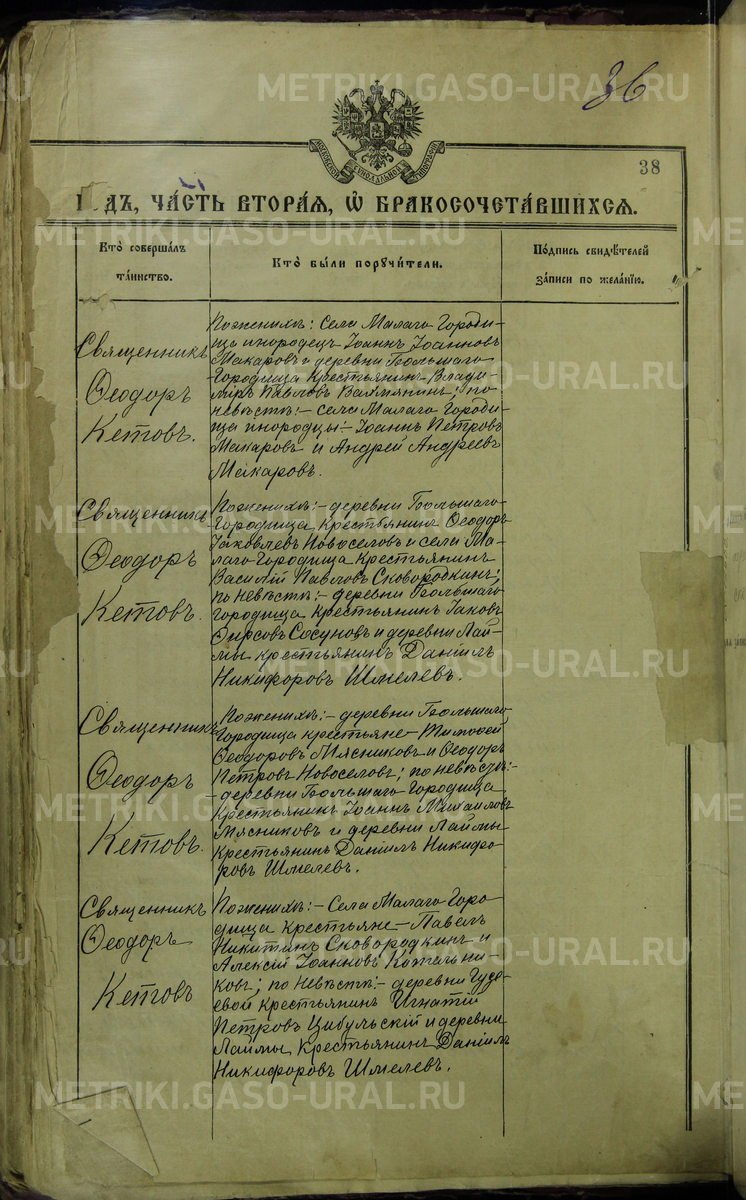 METRIKI.GASO-URAL.RU
36
МОСКОВСКОЙ СѴНОДАЛЬНОЙ ТИПОГРАФІИ
38
дъ, ча́сть втора́ѧ, ѡ҆ бракосочета́вшихсѧ.
Кто̀ соверша́лъ та́инство.
Кто̀ бы́ли порꙋчи́тели.
По́дпись свидѣ́телей за́писи по жела́нїю.
Священникъ
Ѳеодоръ
Кетовъ.
По женихѣ: села Малаго Городи-
ща инородецъ Іоаннъ Іоанновъ
Макаровъ и деревни Большаго
Городища крестьянинъ Влади-
міръ Павловъ
по
невѣстѣ:- села Малаго Городи-
ща инородцы:- Іоаннъ Петровъ
Макаровъ и Андрей Андреевъ
Макаровъ.
Священникъ
Ѳеодоръ
Кетовъ.
По женихѣ:- деревни Большаго
Городища крестьянинъ Ѳеодоръ
Іаковлевъ Новоселовъ и села Ма-
лаго Городища крестьянинъ
Василій Павловъ Сковородкинъ;
по невѣстѣ:- деревни Большаго
Городища крестьянинъ Іаковъ
Ѳирсовъ Сосуновъ и деревни Лай-
мы крестьянинъ Даніилъ
Никифоровъ Шмелевъ.
Священникъ
Ѳеодоръ
Кетовъ.
По женихѣ:- деревни Большаго
Городища крестьяне- Тимоѳей
Ѳеодоровъ Мясниковъ и Ѳеодоръ
Петровъ Новоселовъ; по невѣстѣ:-
деревни Большаго Городища
крестьянинъ Іоаннъ Михайловъ
Мясниковъ и деревни Лаймы
крестьянинъ Даніилъ Никифо-
ровъ Шмелевъ.
Священникъ
Ѳеодоръ
Кетовъ
По женихѣ:- Села Малаго Горо-
дища крестьяне- Павелъ
Никитинъ Сковородкинъ и
Алексій Іоанновъ Котельни-
ковъ; по невѣстѣ:- деревни Гузе-
евой крестьянинъ Игнатій
Петровъ Цибульскій и деревни
Лаймы крестьянинъ Даніилъ
Никифоровъ Шмелевъ.